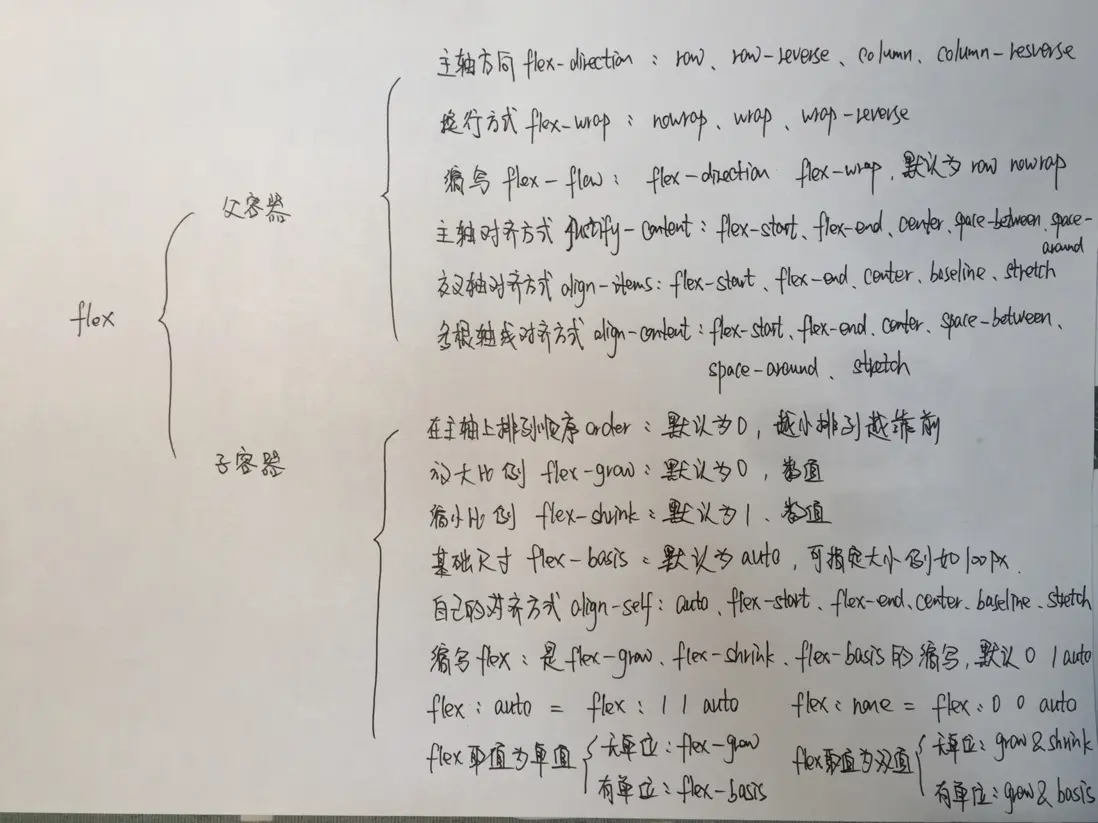 主轴方向 flex-direction：row、row-reverse、column、column-resverse
换行方式 flex-wrap：nowrap、wrap、wrap-reverse
缩写 flex-flow：flex-direction flex-wrap，默认为 row nowrap
父容器
主轴对齐方式 justify-content：flex-start、flex-end、center、space-between、space-around
交叉轴对齐方式 align-items：flex-start、flex-end、center、baseline、stretch
flex
多根轴线对齐方式 align-content：flex-start、flex-end、center、space-between、
space-around、stretch
在主轴上排列顺序 order：默认为0，越小排列越靠前
子容器
放大比例 flex-grow：默认为0，数值
缩小比例 flex-shrink：默认为1、数值
基础尺寸 flex-basis：默认为 auto，可指定大小例如100px.
自己的对齐方式 align-self：auto、flex-start、flex-end、center、baseline、stretch
缩写flex：是 flex-grow、flex-shrink、flex-basis 的缩写，默认 0 1 auto
flex：auto = flex：1 1 auto flex：none = flex：0 0 auto
flex取值为单值 无单位：flex-grow flex取值为双值 无单位：grow & shrink
有单位：flex-basis 有单位：grow & basis